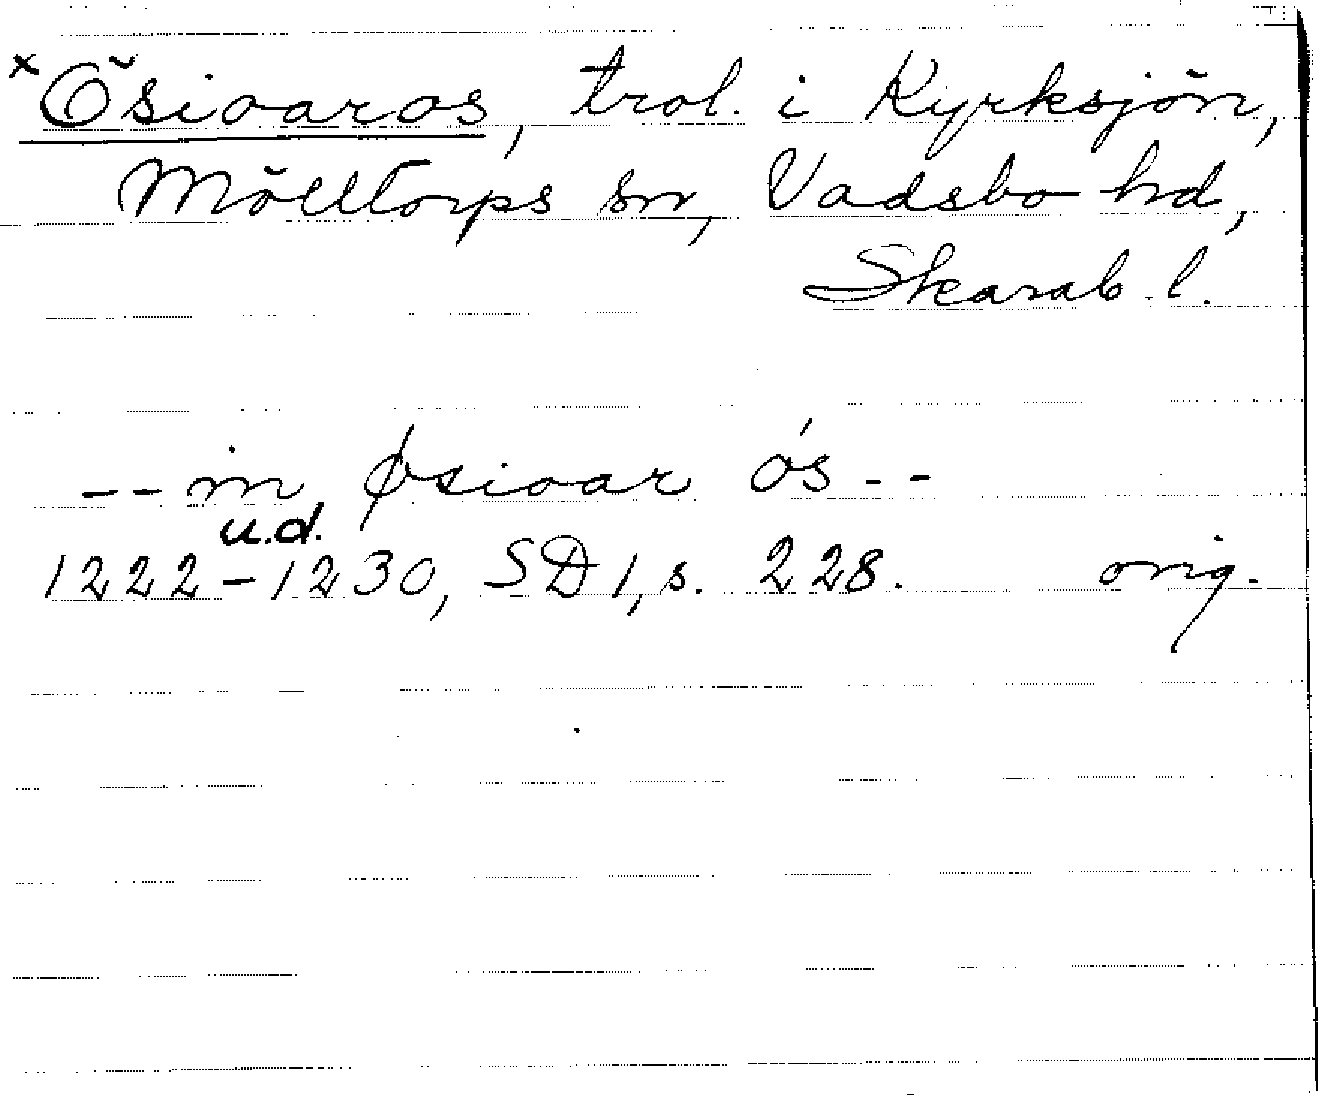 x Ösioaros, trol. i Kyrksjön,
Mölltorps sn, Vadsbo hd,
Skarab. l.
-- in Øsioar ós --
u.d.
1222-1230, SD 1, s. 228. orig.